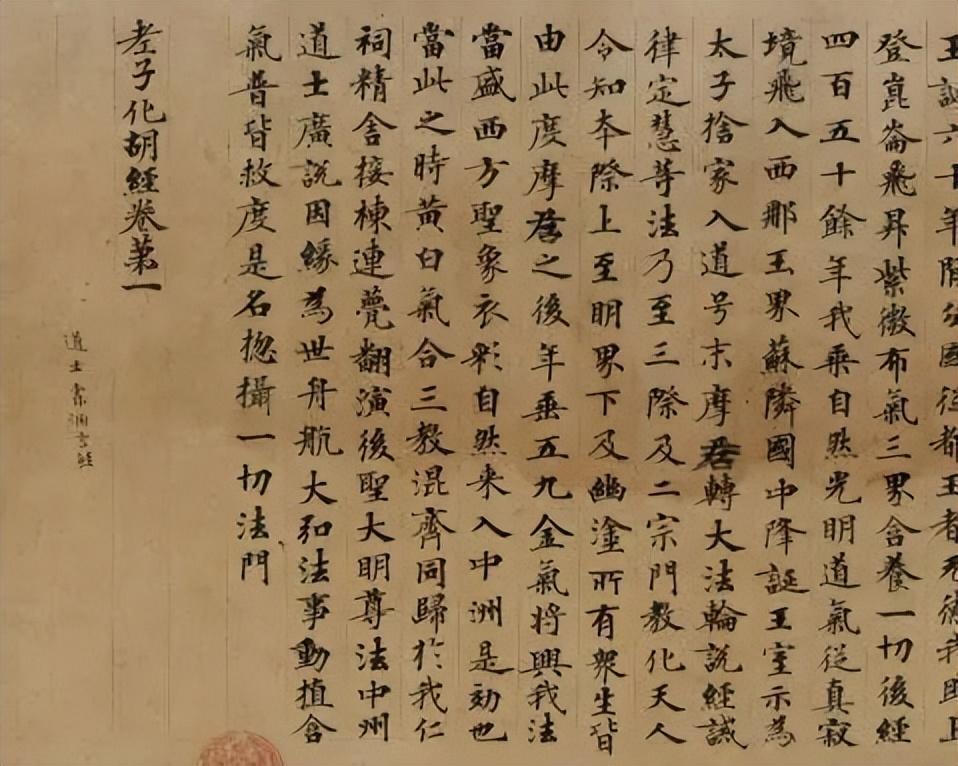 王誕六十年閒分國從都王者无德我即上
登崑崙飛昇紫微布氣三界含養一切後經
四百五十餘年我乘自然光明道氣從真寂
境飛入西那玉界蘇隣國中降誕王室示為
太子捨家入道号末摩尼轉大法輪說經誡
律定慧等法乃至三際及二宗門教化天人
令知本際上至明界下及幽塗所有衆生皆
由此度摩尼之後年垂五九金氣將興我法
當盛西方聖象衣彩自然来入中洲是効也
當此之時黃白氣合三教混齊同歸於我仁
祠精舍接棟連甍翻演後聖大明尊法中州
道士廣說因緣為世舟航大弘法事動植含
氣普皆救度是名惣攝一切法門
老子化胡經卷第一
道士索洞玄經